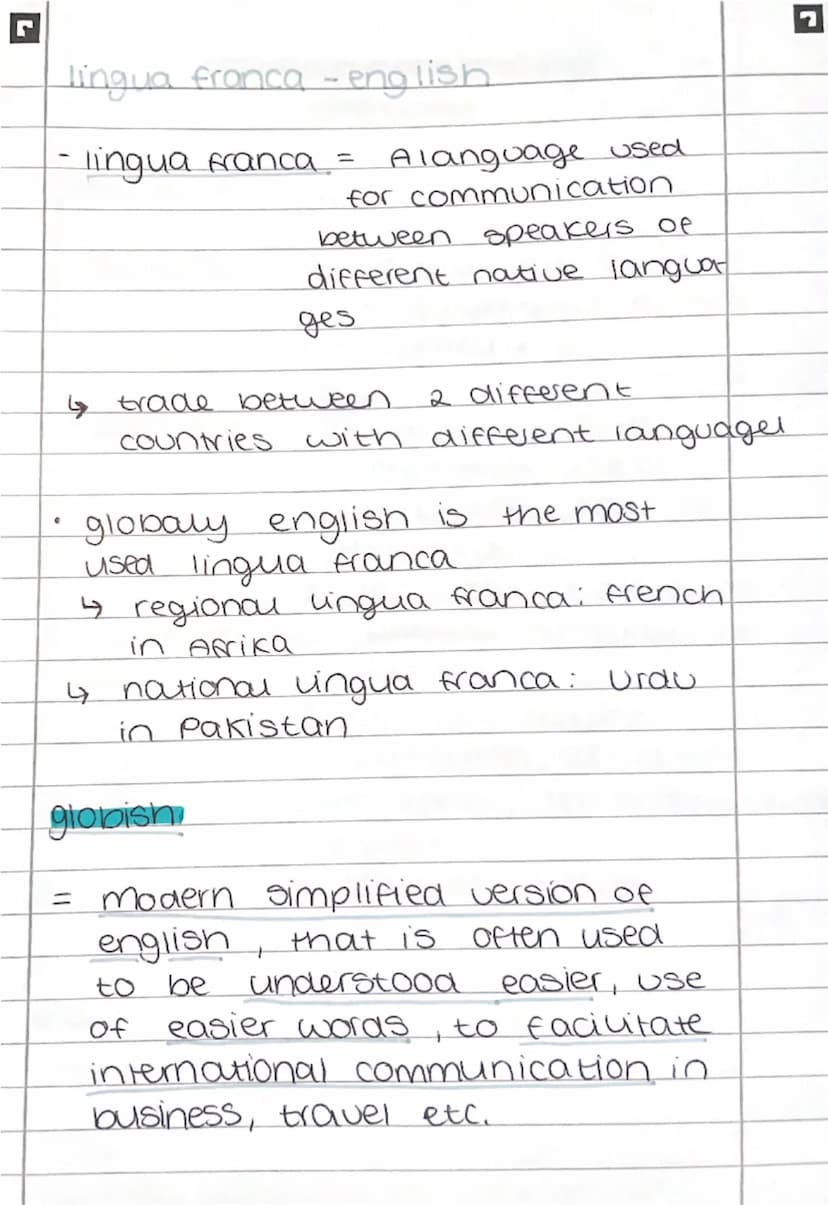 lingua franca - english
- lingua franca = A language used
for communication
between speakers of
different native langua-
ges
↳ trade between 2 different
countries with different languages
• globaly english is the most
used lingua franca
↳ regional lingua franca: french
in Afrika
↳ national lingua franca: Urdu
in Pakistan
globish
= modern simplified version of
english, that is often used
to be understood easier, use
of easier words, to facilitate
international communication in
business, travel etc.